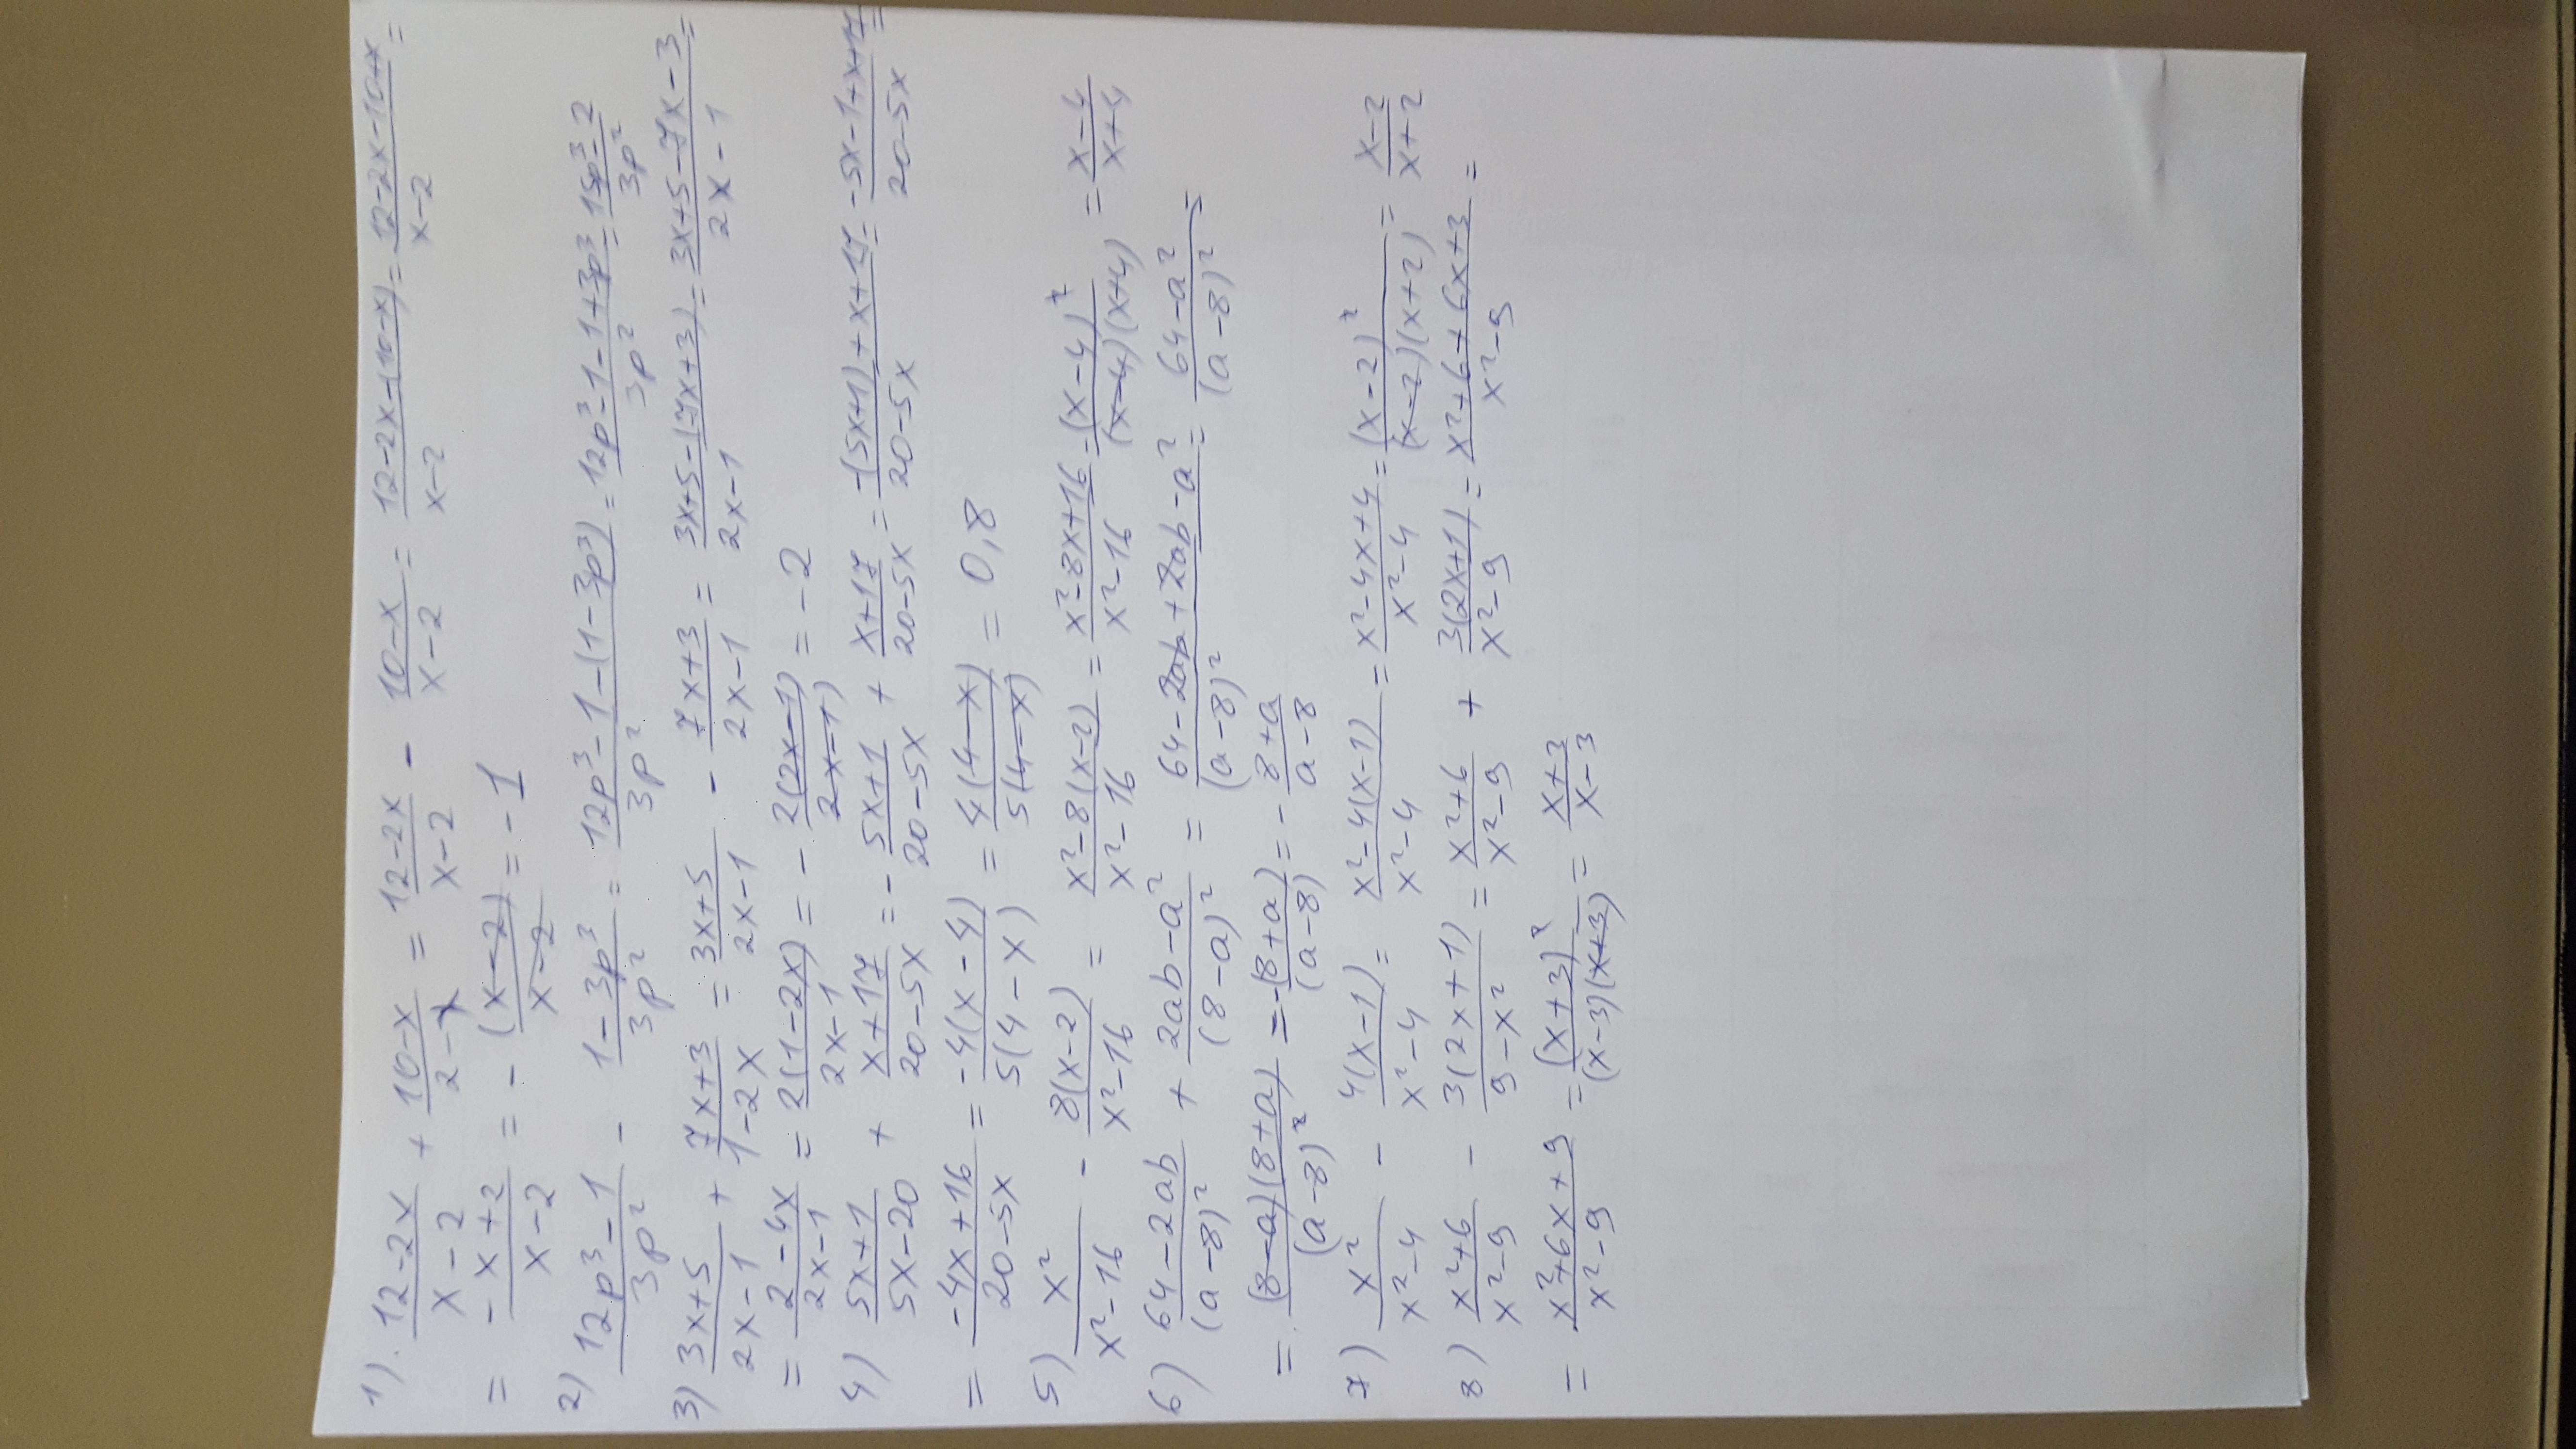 1). (12-2x)/(x-2) + (10-x)/(2-x) = (12-2x)/(x-2) - (10-x)/(x-2) = (12-2x-(10-x))/(x-2) = (12-2x-10+x)/(x-2) =
= (-x+2)/(x-2) = - (x-2)/(x-2) = -1
2) (12p³-1)/(3p²) - (1-3p³)/(3p²) = (12p³-1-(1-3p³))/(3p²) = (12p³-1-1+3p³)/(3p²) = (15p³-2)/(3p²)
3) (3x+5)/(2x-1) + (7x+3)/(1-2x) = (3x+5)/(2x-1) - (7x+3)/(2x-1) = (3x+5-(7x+3))/(2x-1) = (3x+5-7x-3)/(2x-1) =
= (2-4x)/(2x-1) = 2(1-2x)/(2x-1) = - 2(2x-1)/(2x-1) = -2
4) (5x+1)/(5x-20) + (x+17)/(20-5x) = - (5x+1)/(20-5x) + (x+17)/(20-5x) = (-(5x+1)+x+17)/(20-5x) = (-5x-1+x+17)/(20-5x) =
= (-4x+16)/(20-5x) = -4(x-4)/(5(4-x)) = 4(4-x)/(5(4-x)) = 0,8
5) x²/(x²-16) - 8(x-2)/(x²-16) = (x²-8(x-2))/(x²-16) = (x²-8x+16)/(x²-16) = (x-4)²/((x-4)(x+4)) = (x-4)/(x+4)
6) (64-2ab)/(a-8)² + (2ab-a²)/(8-a)² = (64-2ab+2ab-a²)/(a-8)² = (64-a²)/(a-8)² =
= (8-a)(8+a)/(a-8)² = -(8+a)/(a-8) = - (8+a)/(a-8)
7) x²/(x²-4) - 4(x-1)/(x²-4) = (x²-4(x-1))/(x²-4) = (x²-4x+4)/(x²-4) = (x-2)²/((x-2)(x+2)) = (x-2)/(x+2)
8) (x²+6)/(x²-9) - 3(2x+1)/(9-x²) = (x²+6)/(x²-9) + 3(2x+1)/(x²-9) = (x²+6+6x+3)/(x²-9) =
= (x²+6x+9)/(x²-9) = (x+3)²/((x-3)(x+3)) = (x+3)/(x-3)